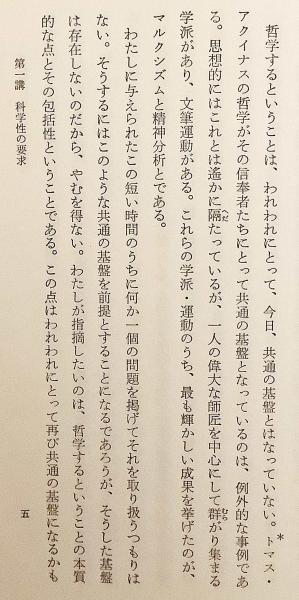 哲学するということは、われわれにとって、今日、共通の基盤とはなっていない。トマス・
アクイナスの哲学がその信奉者たちにとって共通の基盤となっているのは、例外的な事例であ
る。思想的にはこれとは遙かに隔たっているが、一人の偉大な師匠を中心にして群がり集まる
学派があり、文筆運動がある。これらの学派・運動のうち、最も輝かしい成果を挙げたのが、
マルクシズムと精神分析とである。
わたしに与えられたこの短い時間のうちに何か一個の問題を掲げてそれを取り扱うつもりは
ない。そうするにはこのような共通の基盤を前提とすることになるであろうが、そうした基盤
は存在しないのだから、やむを得ない。わたしが指摘したいのは、哲学するということの本質
的な点とその包括性ということである。この点はわれわれにとって再び共通の基盤になるかも
第一講　科学性の要求
五